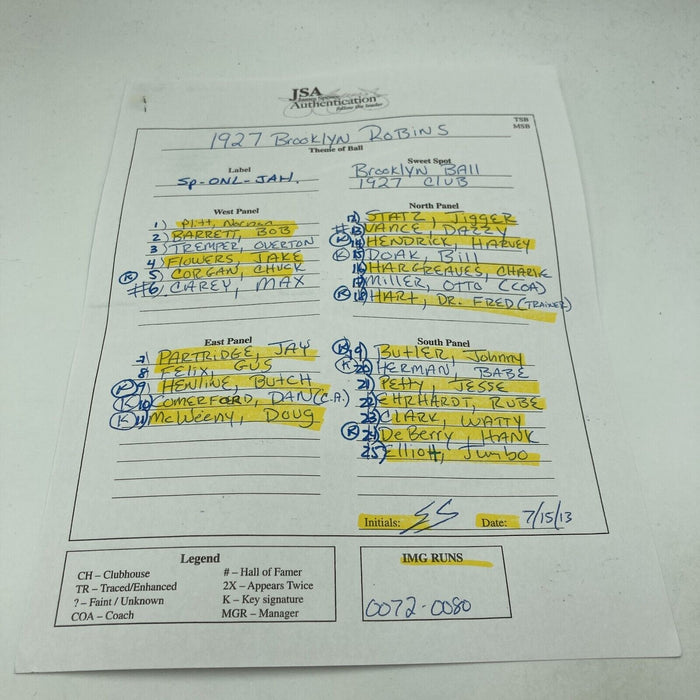 JSA
James Spence
Authentication
follow the leader
TSB
MSB
1927 Brooklyn Robins
Theme of Ball
Label
Sp-ONL-JAH.
Sweet Spot
Brooklyn BALL
1927 CLUB
West Panel
1) Pitt, Norman
2) BARRETT, BOB
3) TREMPER, OVERTON
4) FLOWERS, JAKE
K 5) CORGAN, CHUCK
#6. CAREY, MAX
North Panel
12) STATZ, JIGGER
#13) VANCE, DAZZY
K 14) HENDRICK, HARVEY
K 15) DOAK, Bill
16) HARGREAVES, CHARLIE
17) MILLER, OTTO (COA)
K 18) HART, DR. FRED (TRAINER)
East Panel
7) PARTRIDGE, JAY
8 FELIX, GUS
K 9) HENLINE, BUTCH
K 10) COMERFORD, DAN (C.A.)
K 11) McWEENY, DOUG
South Panel
K 19) BUTLER, Johnny
K 20) HERMAN, BABE
21) Petty, JESSE
22) EHRHARDT, RUBE
23) CLARK, WATTY
K 24) DeBERRY, HANK
25) Elliott, Jumbo
Initials: SS Date: 7/15/13
Legend
CH – Clubhouse
TR – Traced/Enhanced
? – Faint / Unknown
COA – Coach
# – Hall of Famer
2X – Appears Twice
K – Key signature
MGR – Manager
IMG RUNS
0072-0080